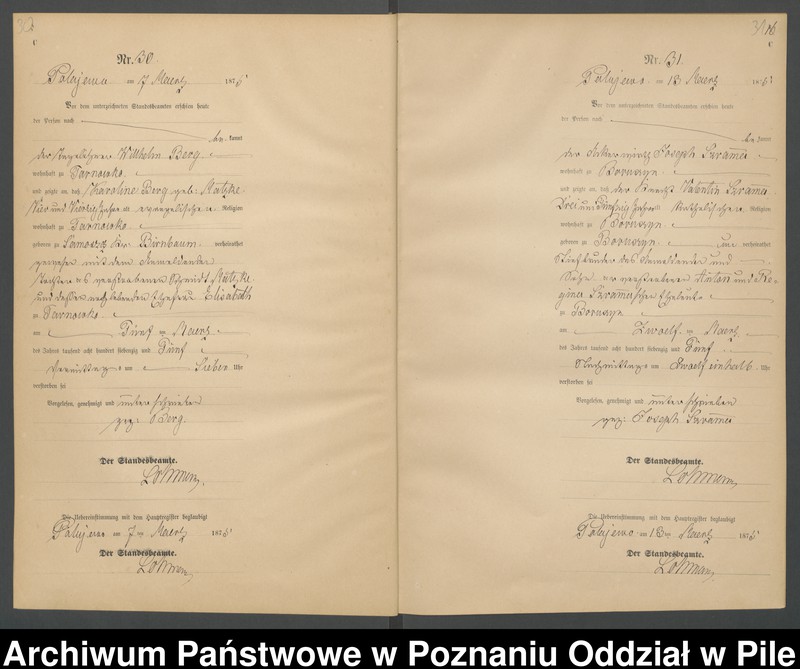 C
Nr. 30.
Polajewo am 7 Maerz 1875
Vor dem unterzeichneten Standesbeamten erschien heute
der Person nach
be kannt
der Wilhelm Berg
wohnhaft zu Tarnowko
und zeigte an, daß Karoline Berg geb.
Vier und Vierzig Jahre alt evangelischer Religion
wohnhaft zu Tarnowko
geboren zu Kr. Birnbaum verheirathet
gewesen mit dem Anmeldenden
Tochter des verstorbenen Schmidt
und dessen Ehefrau Elisabeth
zu Tarnowko
am Fünf ten Maerz
des Jahres tausend acht hundert siebenzig und Fünf
Vormittags um Sieben Uhr
verstorben sei
Vorgelesen, genehmigt und unterschrieben
gez: Berg.
Der Standesbeamte.
Die Uebereinstimmung mit dem Hauptregister beglaubigt
Polajewo am 7 ten Maerz 1875
Der Standesbeamte.
C
Nr. 31.
Polajewo am 13 Maerz 1875
Vor dem unterzeichneten Standesbeamten erschien heute
der Person nach
be kannt
der Ackerwirth Joseph
wohnhaft zu Boruszyn
und zeigte an, daß der Knecht Valentin
Drei und Fünfzig Jahre alt katholischer Religion
wohnhaft zu Boruszyn
geboren zu Boruszyn un verheirathet
Stiefbruder des Anmeldenden und
Sohn der verstorbenen Anton und Re-
gina Eheleute
zu Boruszyn
am Zwoelf ten Maerz
des Jahres tausend acht hundert siebenzig und Fünf
Nachmittags um Zwoelf einhalb Uhr
verstorben sei
Vorgelesen, genehmigt und unterschrieben
gez: Joseph
Der Standesbeamte.
Die Uebereinstimmung mit dem Hauptregister beglaubigt
Polajewo am 13 ten Maerz 1875
Der Standesbeamte.
Archiwum Państwowe w Poznaniu Oddział w Pile